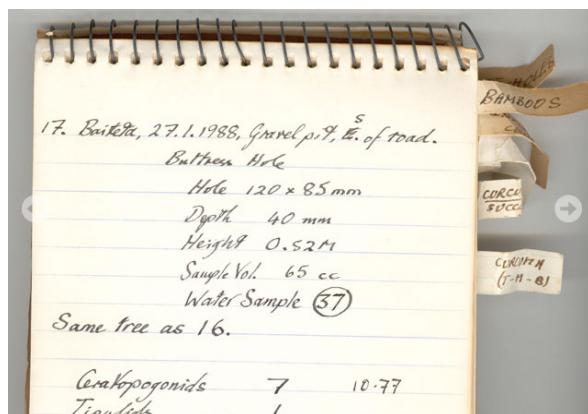 17. Baiteta, 27.1.1988, Gravel pit, S. of road.
Buttress Hole
Hole 120 x 85 mm
Depth 40 mm
Height 0.52M
Sample Vol. 65 cc
Water Sample 37
Same tree as 16.
Ceratopogonids 7 10.77
Tipulids 1
HOLES
BAMBOOS
CURCU
SUCC
CURCUM
(T-H-B)